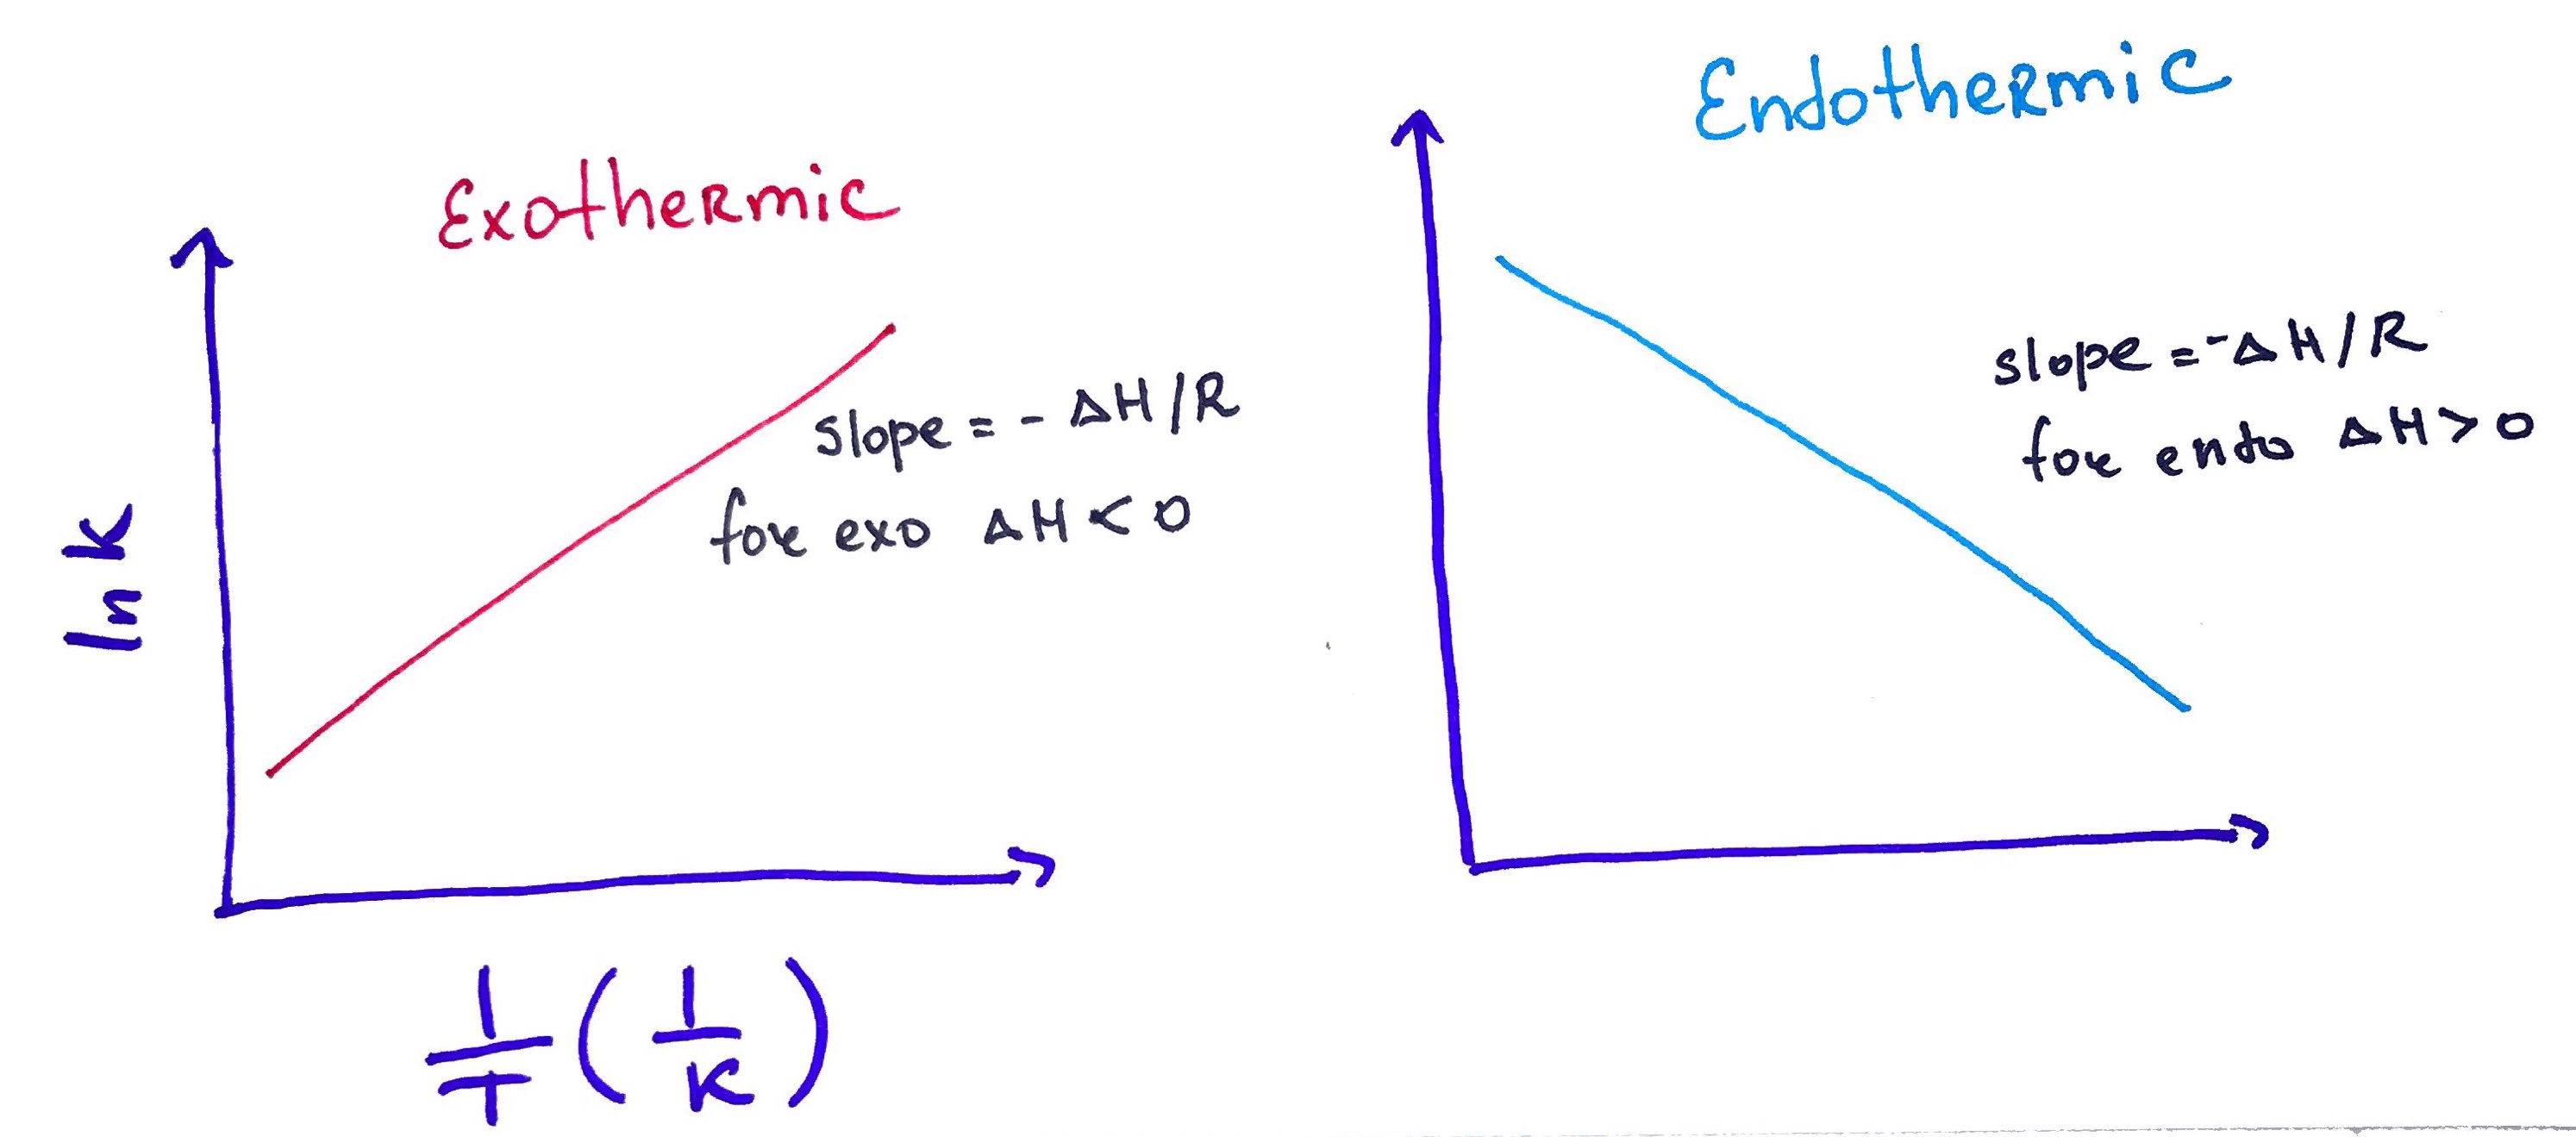 Exothermic
ln K
slope = - ΔH/R
for exo ΔH < 0
1/T (1/K)
Endothermic
slope = -ΔH/R
for endo ΔH > 0